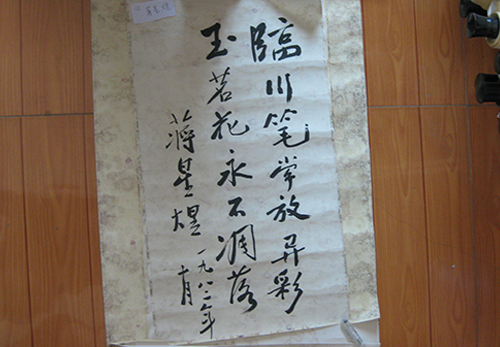 臨川笔常放异彩
玉茗花永不凋落
蒋星煜
一九八二年
十月